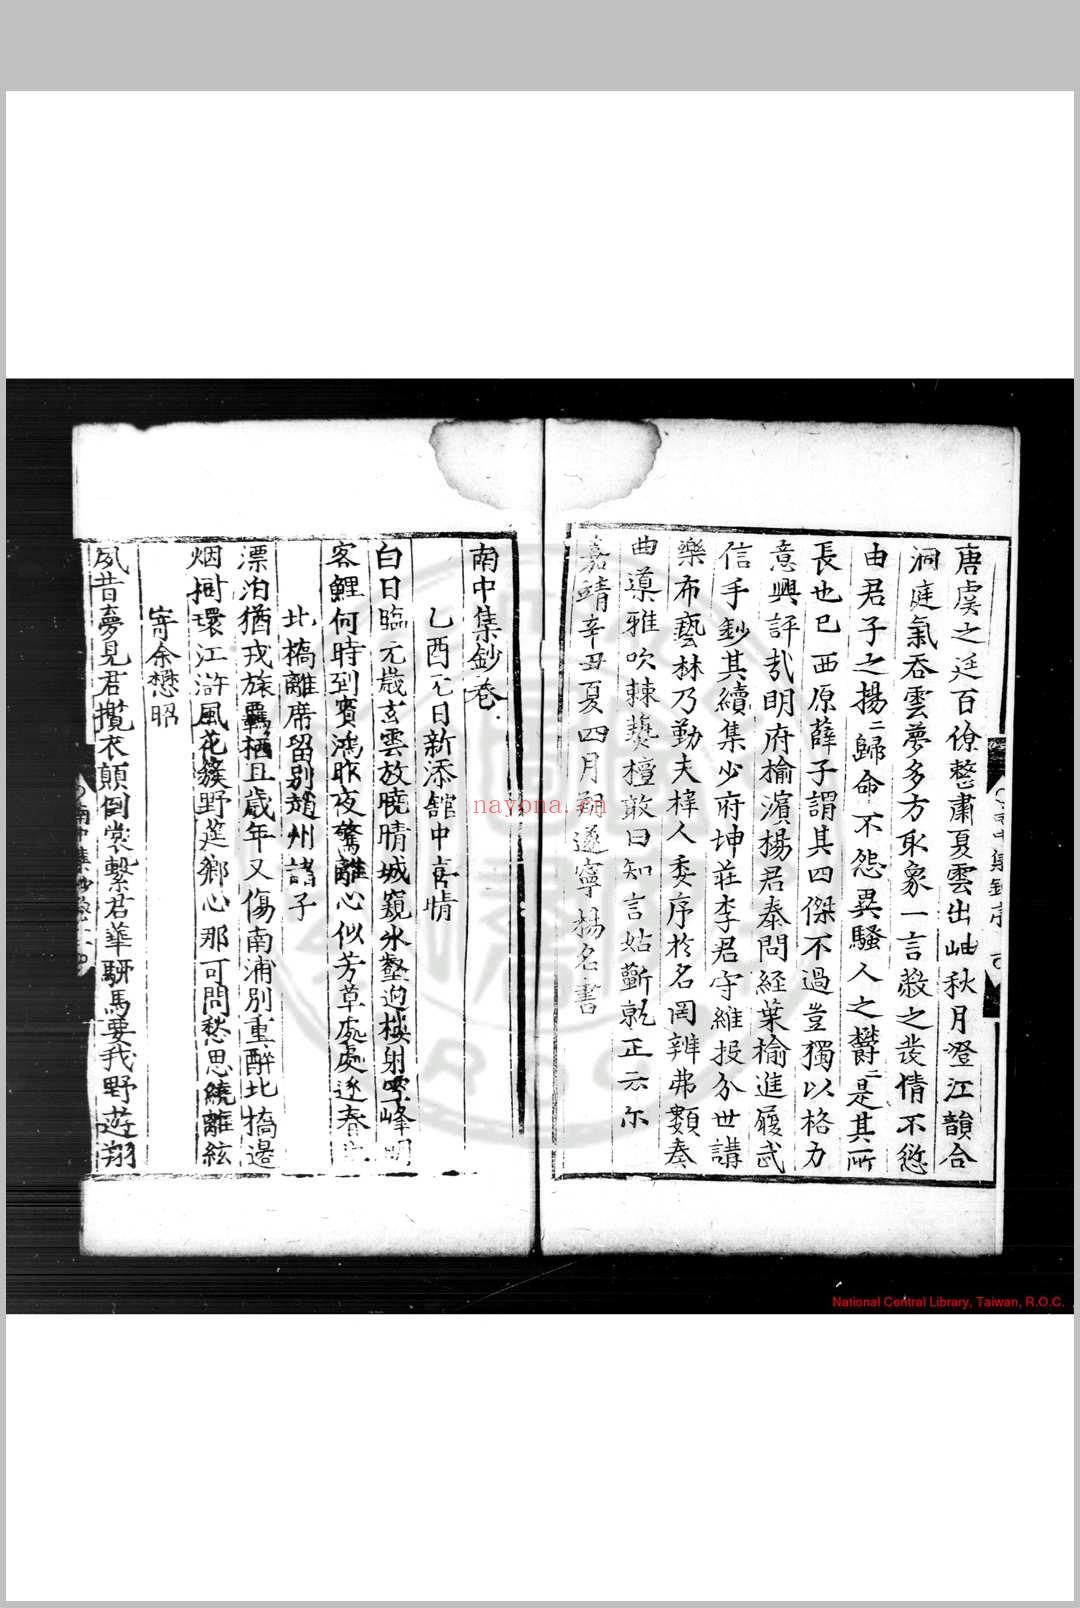 唐虞之廷百僚整肅夏雲出岫秋月澄江韻合
洞庭氣吞雲夢多方取象一言蔽之發情不愆
由君子之揚二歸命不怨異騷人之欝二是其所
長也巳西原薛子謂其四傑不過豈獨以格力
意興評㢤明府榆濱楊君奏問経葉榆進履武
信手鈔其續集少府坤莊李君守維投分世講
樂布藝林乃勤夫梓人委序於名罔辨弗數奏
曲導雅吹棘爇檀敢曰知言姑蘄就正云尔
嘉靖辛丑夏四月朔遂寧楊名書
南中集鈔卷
乙酉元日新添舘中言情
白日臨元歳玄雲放曉晴城窺氷壑迥樓射雪峰明
客鯉何時到賓鴻昨夜驚離心似芳草處處逐春
北橋離席留别趙州諸子
漂泊猶戎旅羈栖且歳年又傷南浦別重醉北橋邊
烟樹環江滸風花簇野筵鄉心那可問愁思繞離絃
寄余懋昭
夙昔夢見君攬衣顛倒裳繫君華騑馬要我野遊翔
南中集鈔
nayona.cn
National Central Library, Taiwan, R.O.C.